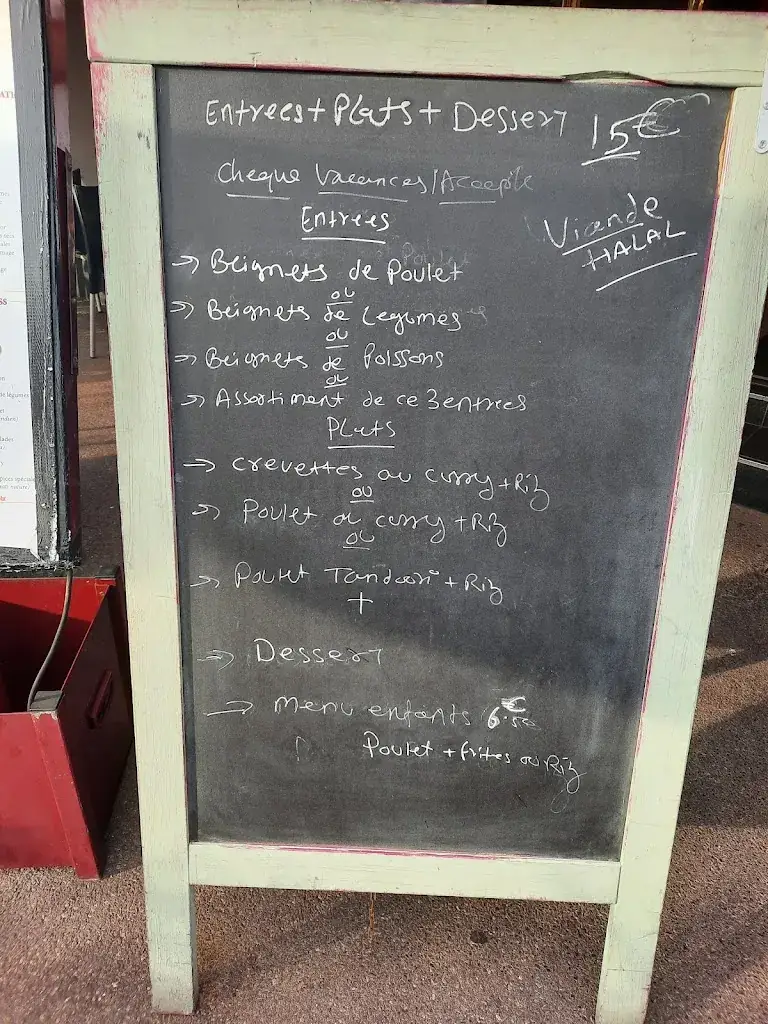 Entrees + Plats + Dessert 15€
Cheque Vacances / Accepte
Viande
HALAL
Entrees
→ Beignets de Poulet
ou
→ Beignets de Legumes
ou
→ Beignets de Poissons
ou
→ Assortiment de ce 3 entrees
Plats
→ crevettes au curry + Riz
ou
→ Poulet au curry + Riz
ou
→ Poulet Tandoori + Riz
+
→ Dessert
→ menu enfants 6.50€
Poulet + frites ou Riz